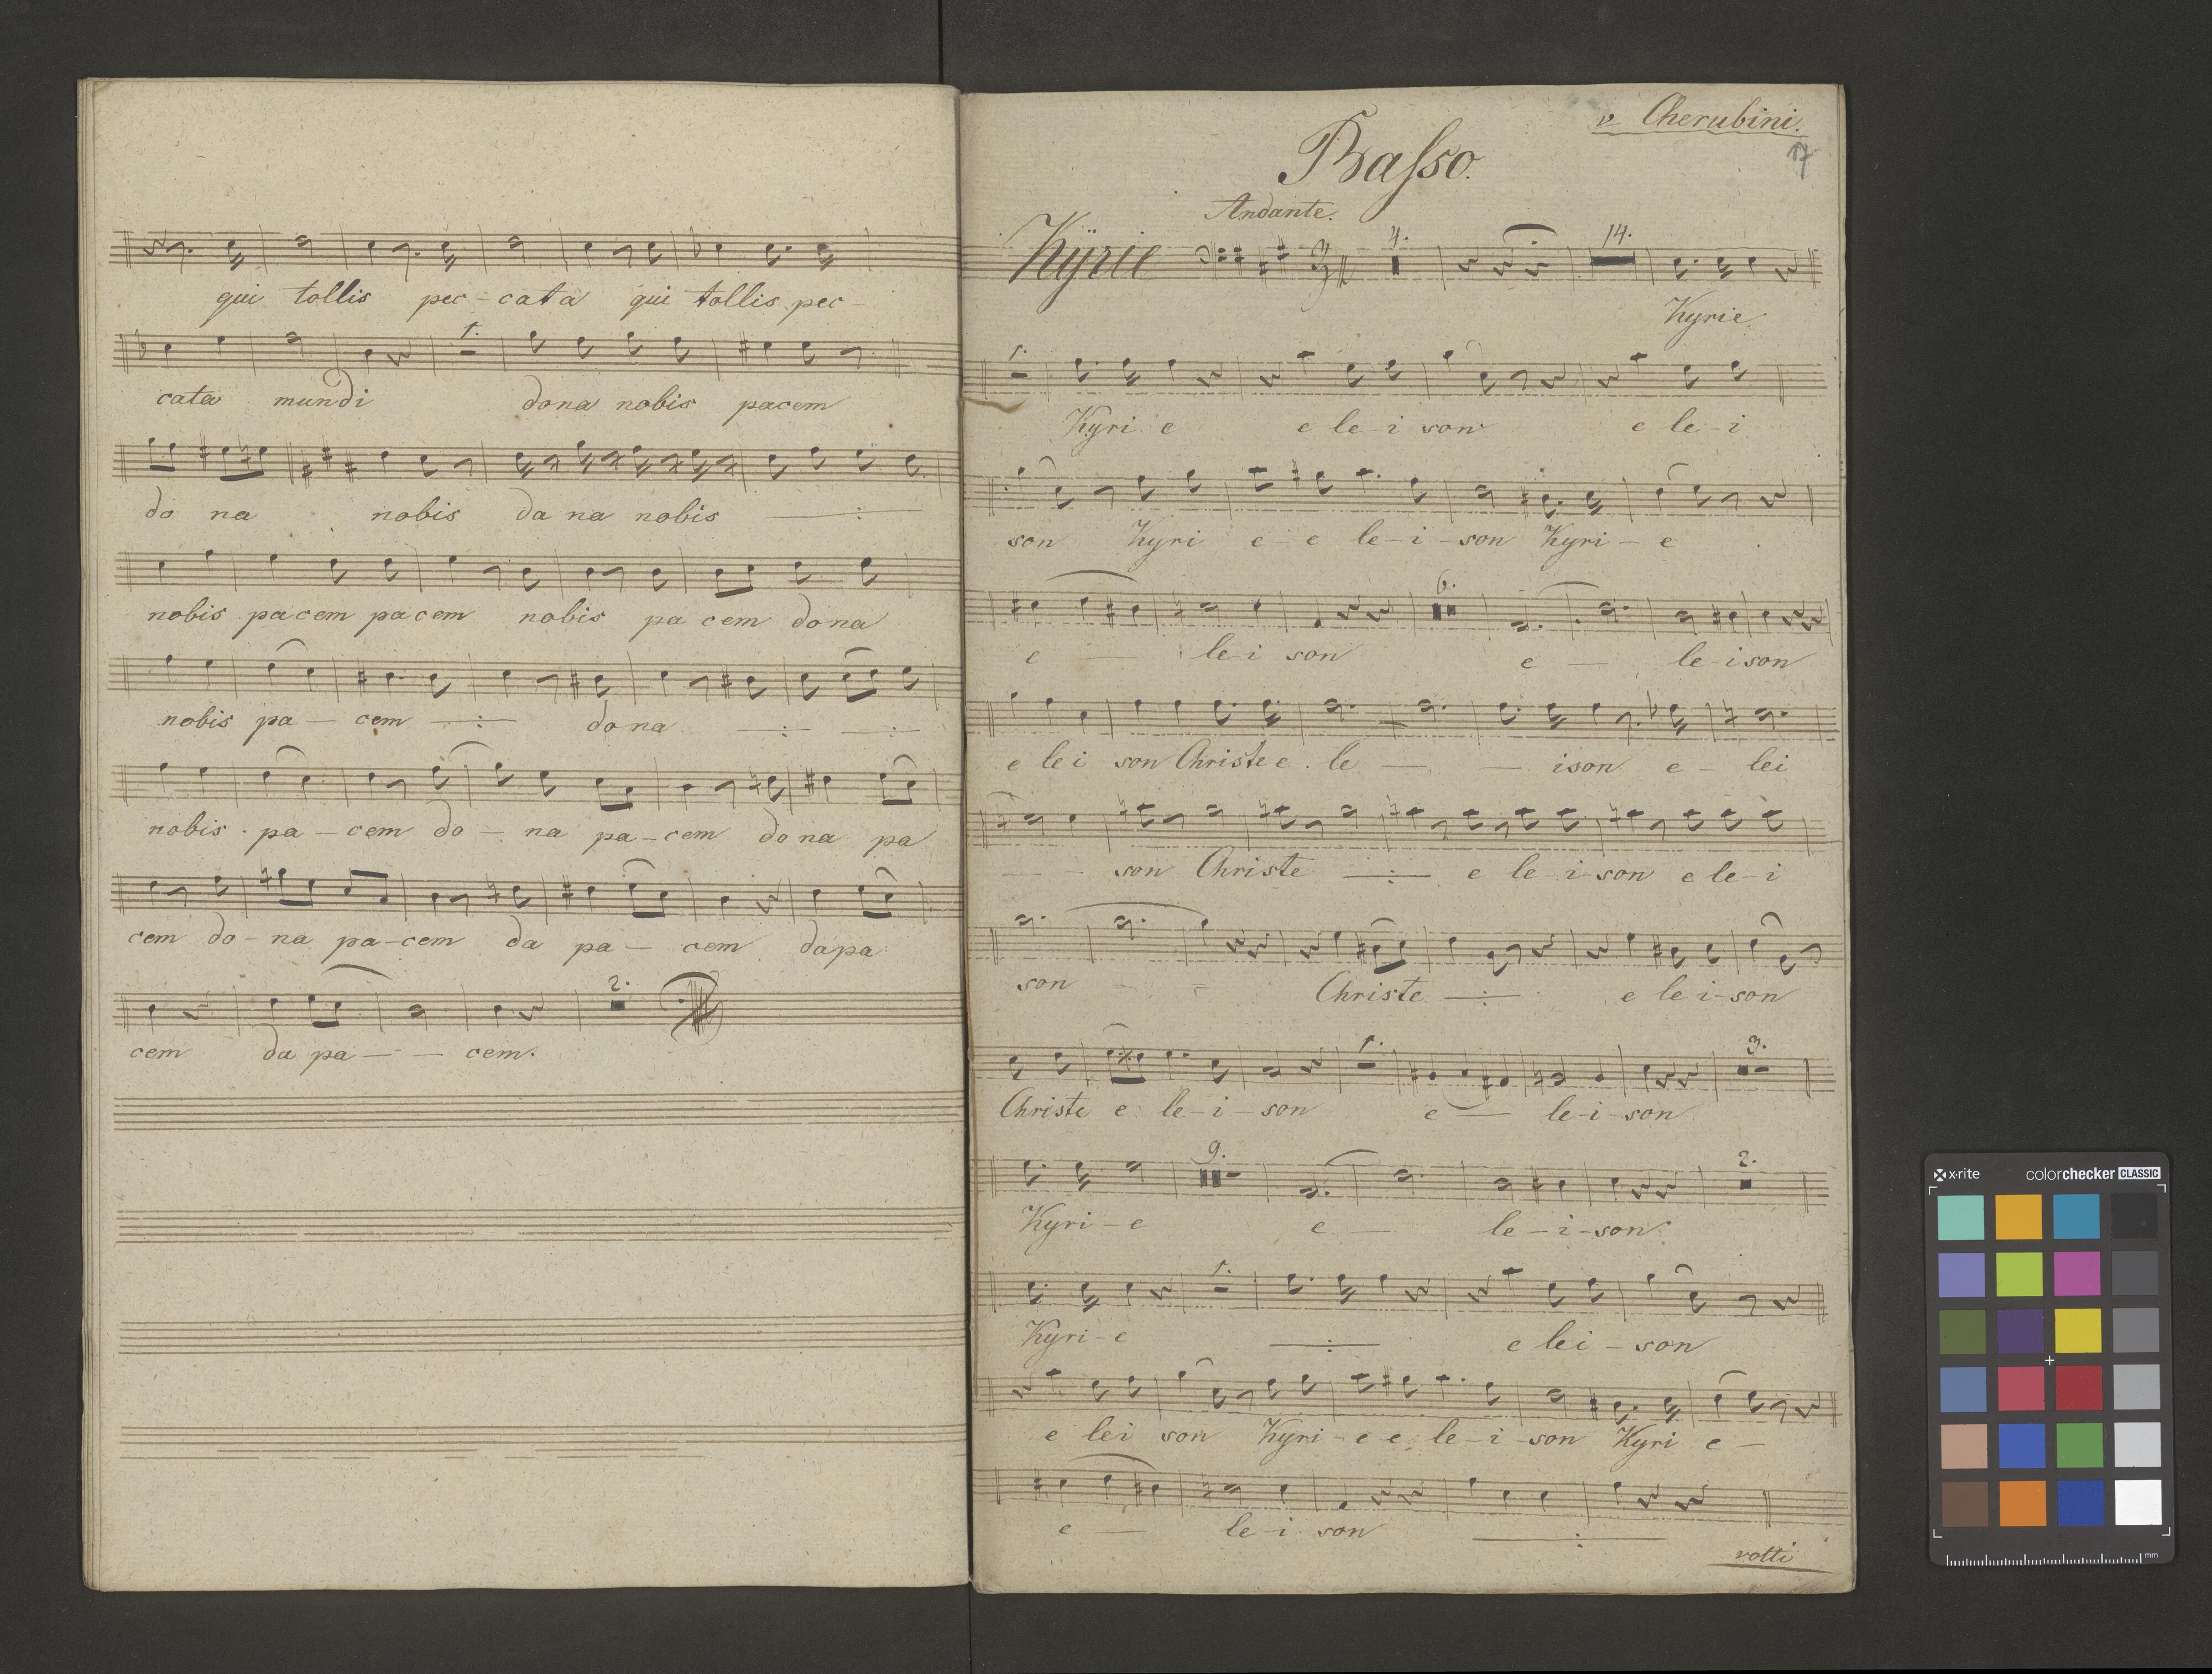 qui tollis pec - cata qui tollis pec -
cata mundi dona nobis pacem
do na nobis da na nobis
nobis pacem pacem nobis pa cem dona
nobis pa - cem dona
nobis pa - cem do - na pa - cem dona pa
cem do - na pa - cem da pa - cem dapa
2.
cem da pa - - cem.
v Cherubini.
17
Baſso.
Andante.
Kÿrie 3 4. 14.
Kyrie
1.
Kyri e e le - i son e le - i
son Kyri e - e le - i - son Kyri - e
6.
e - le - i son e - le - ison
e lei son Christe e le - - ison e - lei
- - son Christe e le - i - son e le - i
son Christe e le i - son
1. 3.
Christe e le - i - son e - le - i - son
9. 2.
Kyri - e e - le - i - son
1.
Kyri - e e lei - son
e lei son Kyri - e e le - i - son Kyri e -
e - le - i son
volti
x-rite colorchecker CLASSIC
mm